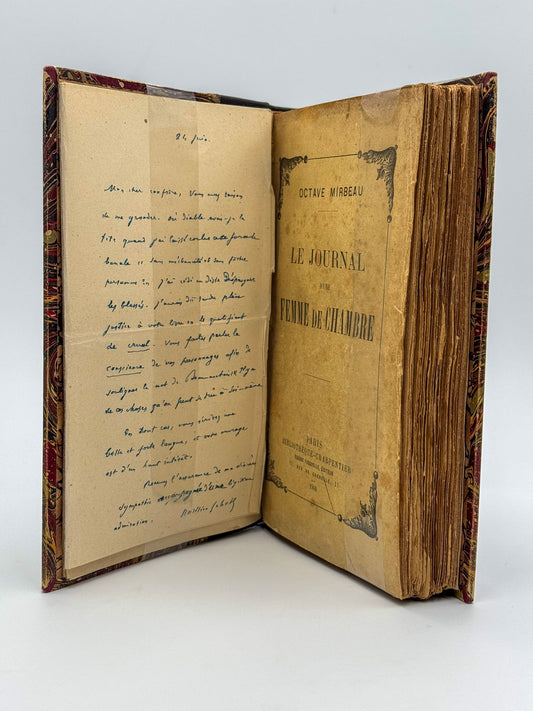 24 juin.
Mon cher confrère, vous avez raison
de me gronder. Où diable avais-je la
tête quand j'ai laissé couler cette formule
banale et sans méchanceté et sans
personne
les blessés. J'aurais dû rendre pleine
justice à votre livre en le qualifiant
de cruel. Vous faites parler la
conscience de vos personnages afin de
souligner le mot de Beaumarchais : Il y a
de ces choses qu'on peut dire à soi-même
En tout cas, vous écrivez une
belle et forte langue, et votre ouvrage
est d'un haut intérêt.
Recevez l'assurance de ma sincère
sympathie accompagnée d'une
admiration.
OCTAVE MIRBEAU
LE JOURNAL
D'UNE
FEMME DE CHAMBRE
PARIS
BIBLIOTHÈQUE-CHARPENTIER
EUGÈNE FASQUELLE, ÉDITEUR
11, RUE DE GRENELLE, 11